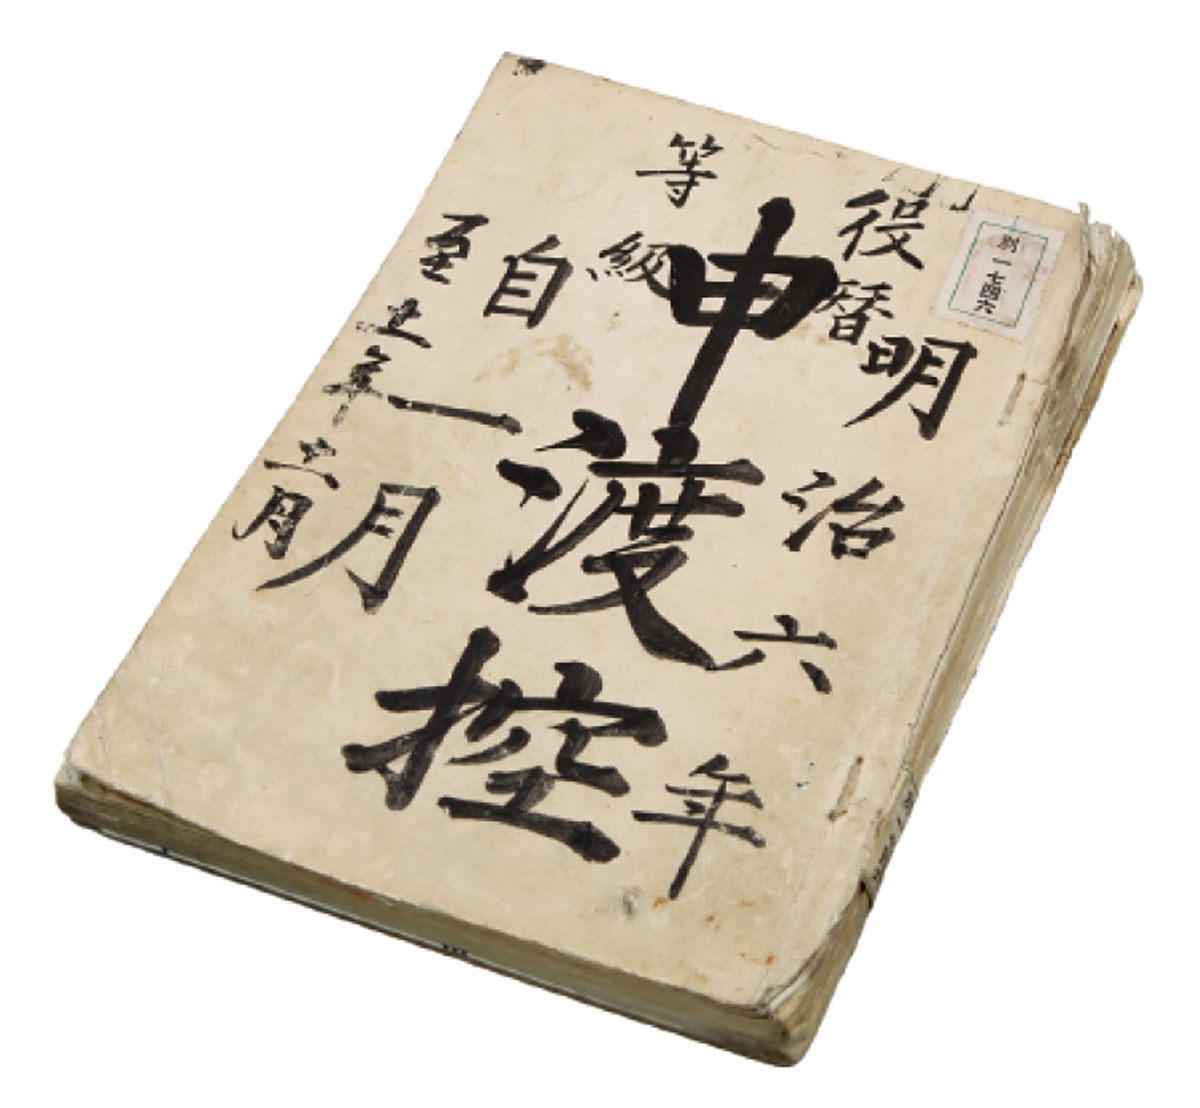 別一七四六
明治六年
役替
等級
申渡控
自一月
至年月